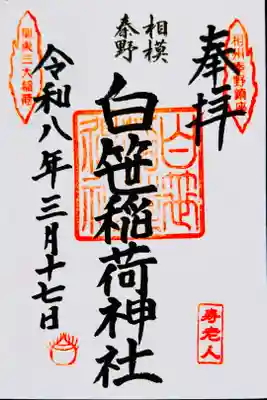 奉拝
相州秦野鎮座
相模
秦野
白笹稲荷神社
白笹
稲荷
神社
関東三大稲荷
令和八年三月十七日
寿老人